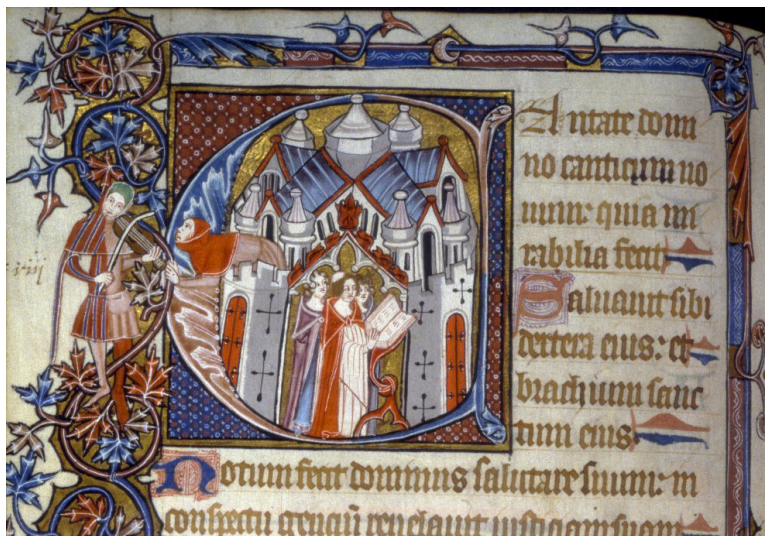 C Antate domi
no canticum no
uum: quia mi
rabilia fecit
Saluauit sibi
dextera eius: et
brachium sanc
tum eius
Notum fecit dominus salutare suum: in
conspectu genciū reuelauit iusticiam suam